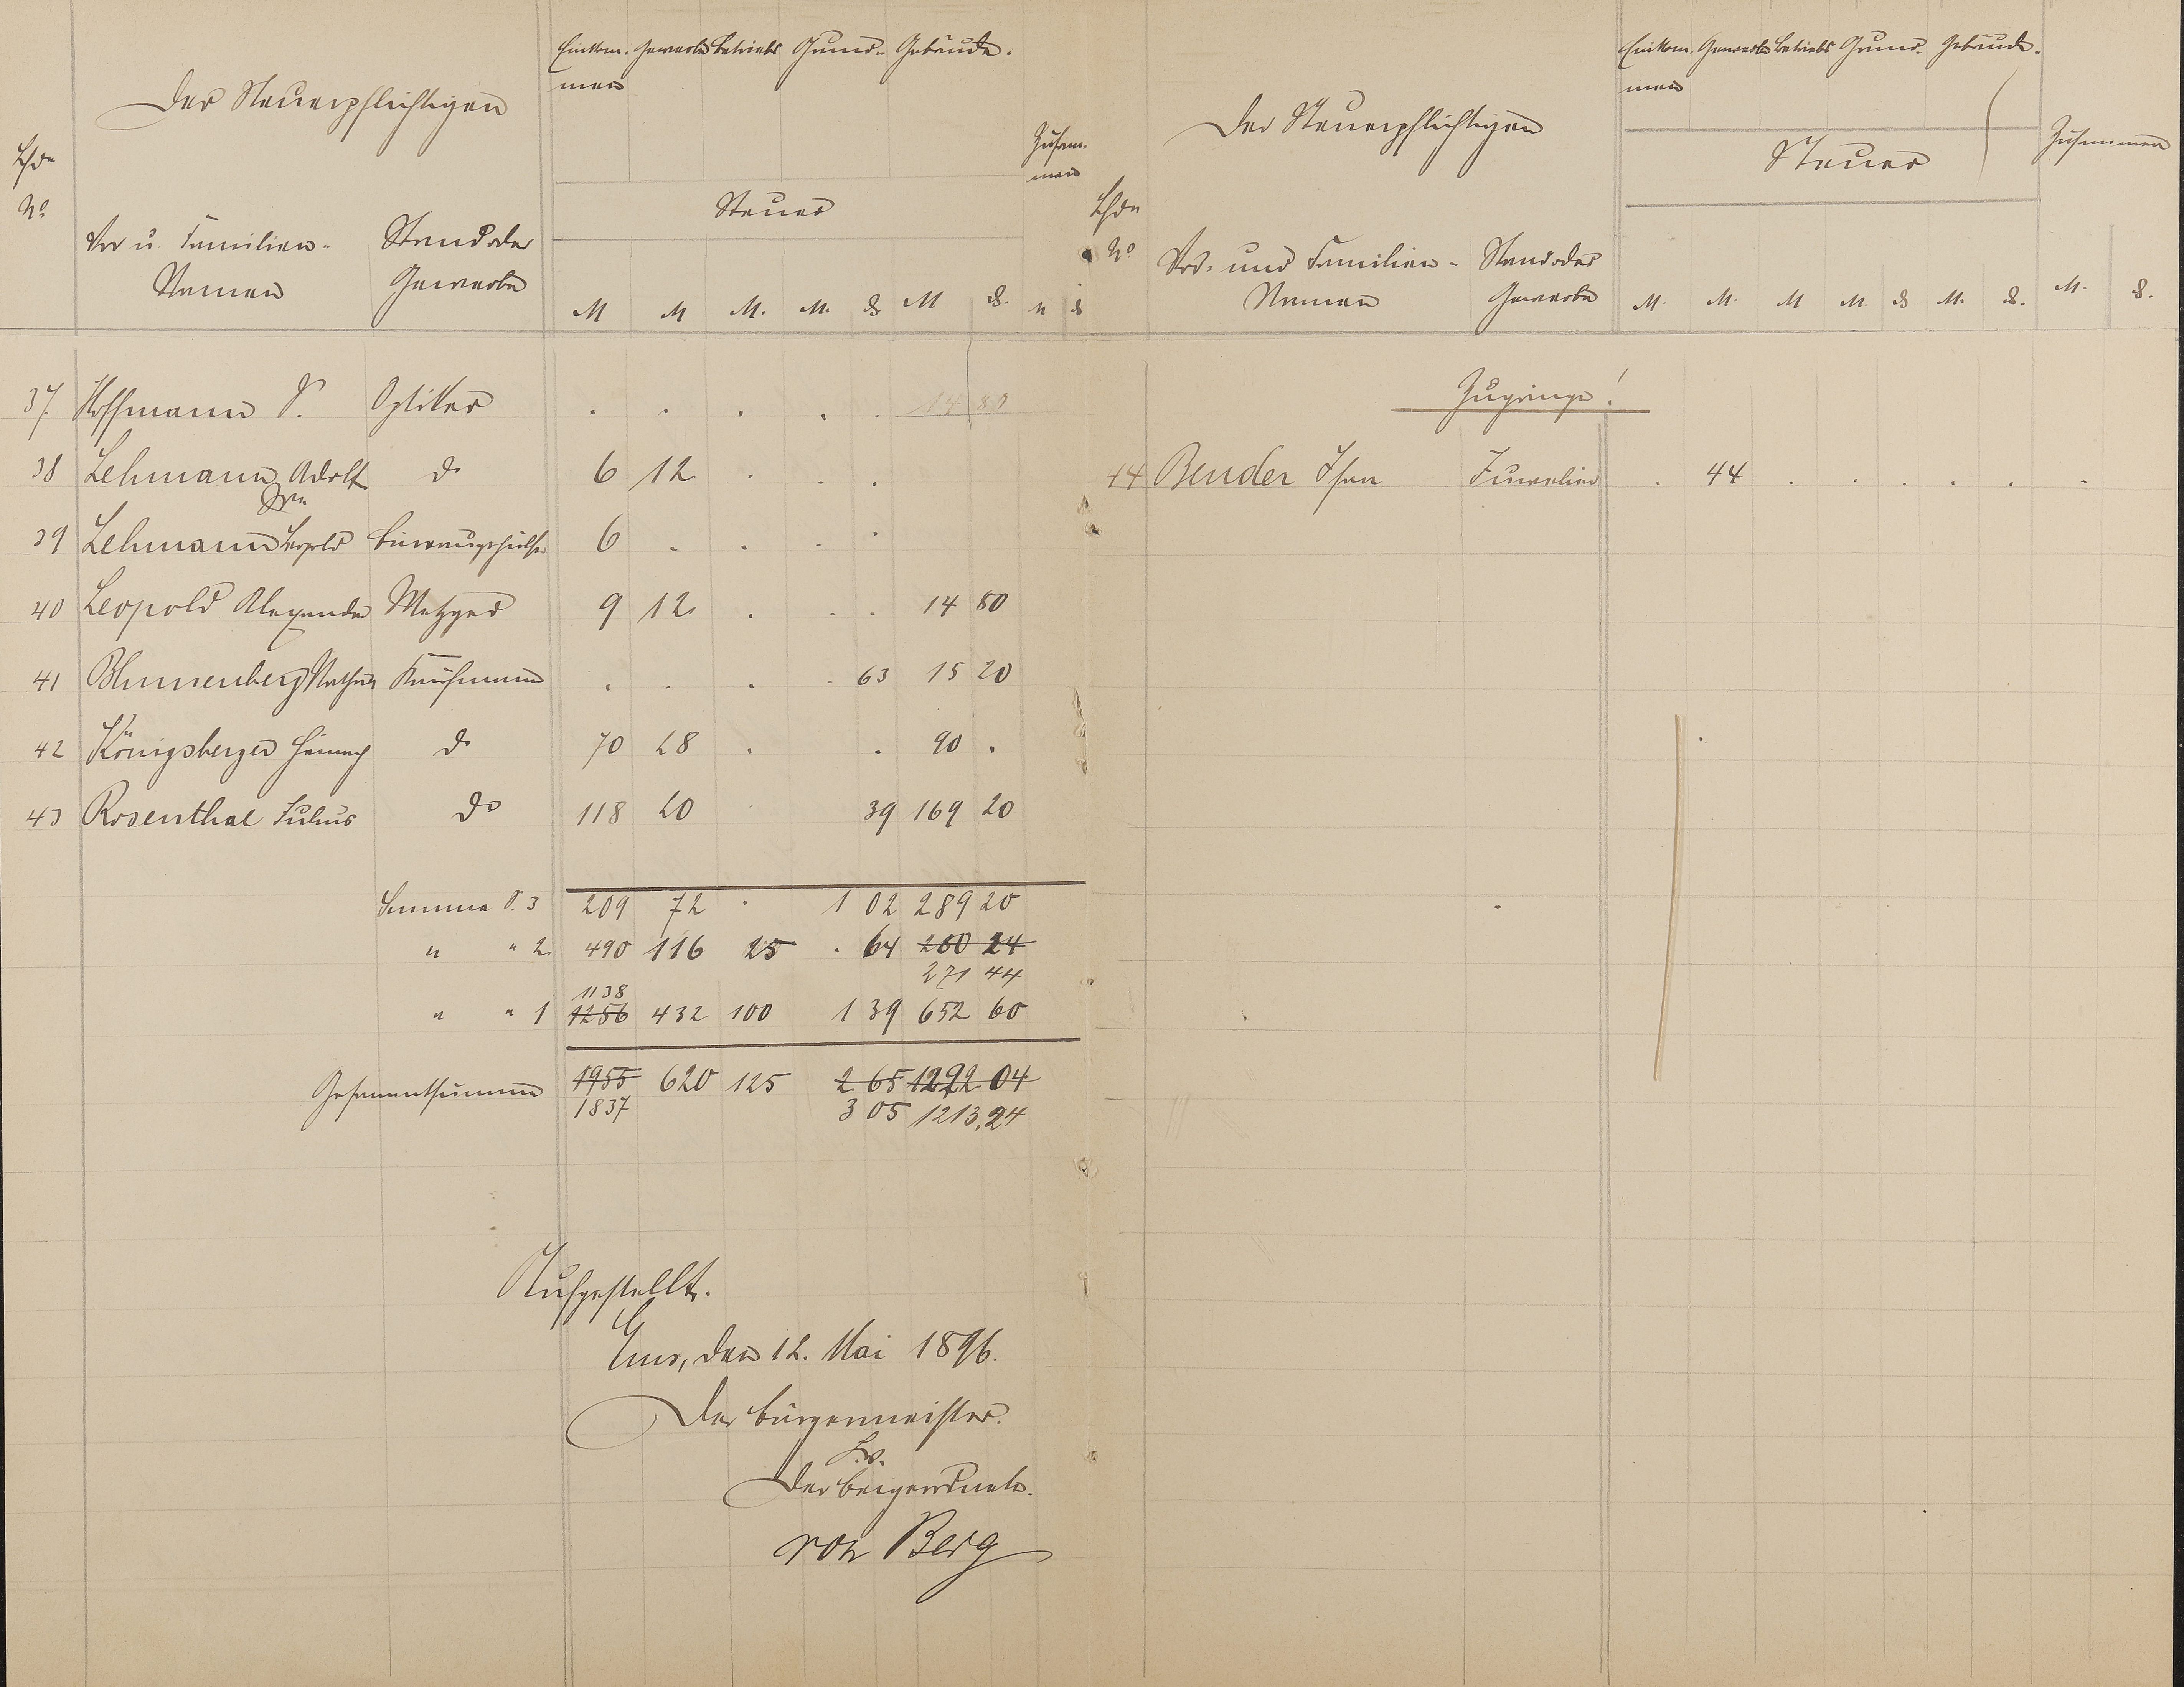 Einkom- Gewerbe Betriebs Grund- Gebäude-
men
Der Steuerpflichtigen
Zusam-
men
Lfde
No
Steuer
Vor u. Familien- Stand oder
Namen Gewerbe
M M M. M. ₰ M ₰. M ₰
37. Hoffmann S. Optiker . . . . . 14 80
38 Lehmann Adolf do 6 12 . . .
39 Lehmann Leopold 6 . . . .
40 Leopold Alexander Metzger 9 12 . . . 14 80
41 Blumenberg Nathan Kaufmann . . . . 63 15 20
42 Königsberger Heinrich do 70 28 . . 90 .
43 Rosenthal Julius do 118 20 39 169 20
Summa S. 3 209 72 . 1 02 289 20
" " 2 490 116 25 . 64 280 24
271 44
1138
" " 1 1256 432 100 1 39 652 60
Gesammtsumme 1955 620 125 2 65 1292 04
1837 3 05 1213.24
Aufgestellt.
Ems, den 12. Mai 1896.
Der Bürgermeister.
I.V.
Der Beigeordnete.
von Berg
Einkom- Gewerbe Betriebs Grund- Gebäude-
men
Der Steuerpflichtigen
Steuer
Zusammen
Lfde
No
Vor- und Familien- Stand oder
Namen Gewerbe
M. M. M M. ₰ M. ₰. M. ₰.
Zugänge!
44 Bender Juwelier . 44 . . . . . .